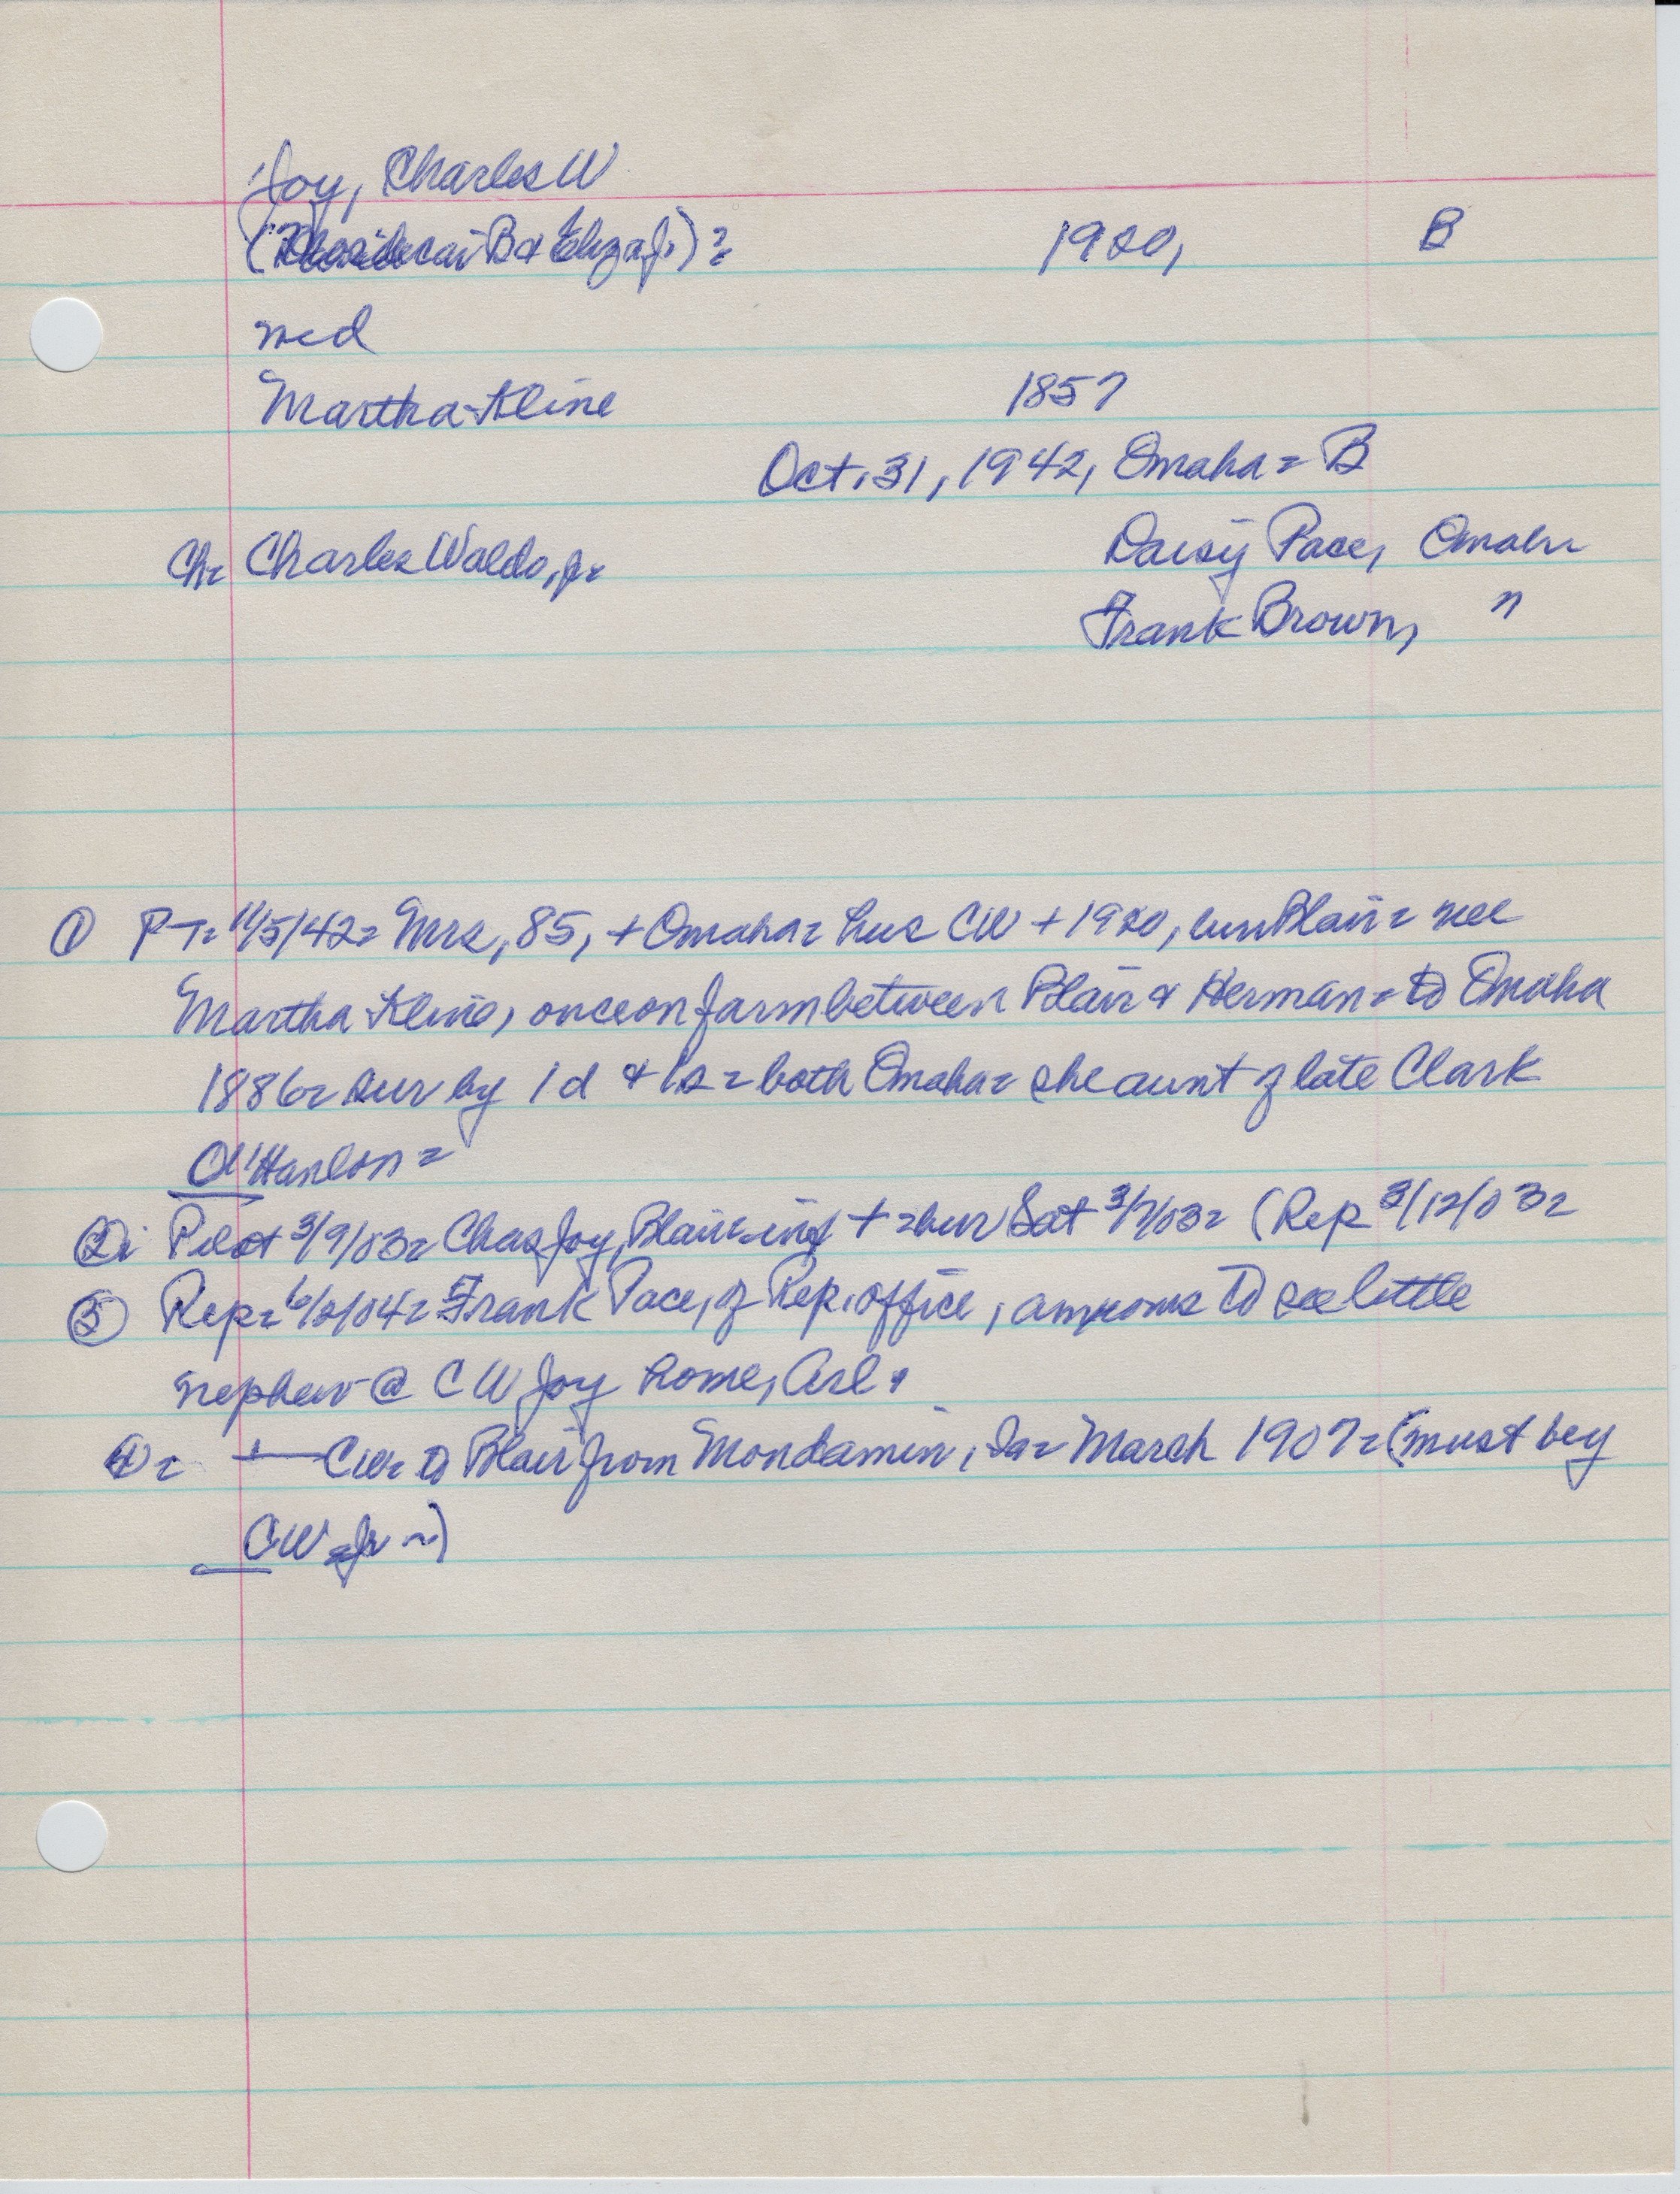 Joy, Charles W
( B & Eliza J.) ? 1920, B
md
Martha Kline 1857
Oct. 31, 1942, Omaha = B
Ch= Charles Waldo, Jr. Daisy Pace, Omaha
Frank Brown, "
① PT= 11/5/42= Mrs, 85, + Omaha= hus CW + 1920, bur Blair= nee
Martha Kline, once on farm between Blair & Herman= to Omaha
1886= sur by 1 d & 1 s = both Omaha= she aunt of late Clark
O'Hanlon=
②: Pilot 3/9/03= Chas Joy, Blair= inf + = bur Sat 3/7/03= (Rep 3/12/03=
③ Rep= Frank Pace, of Rep. office, anxious to see little
nephew @ CW Joy home, Arl.
④= CW= to Blair from Mondamin, Ia= March 1907= (must be
CW Jr ~)